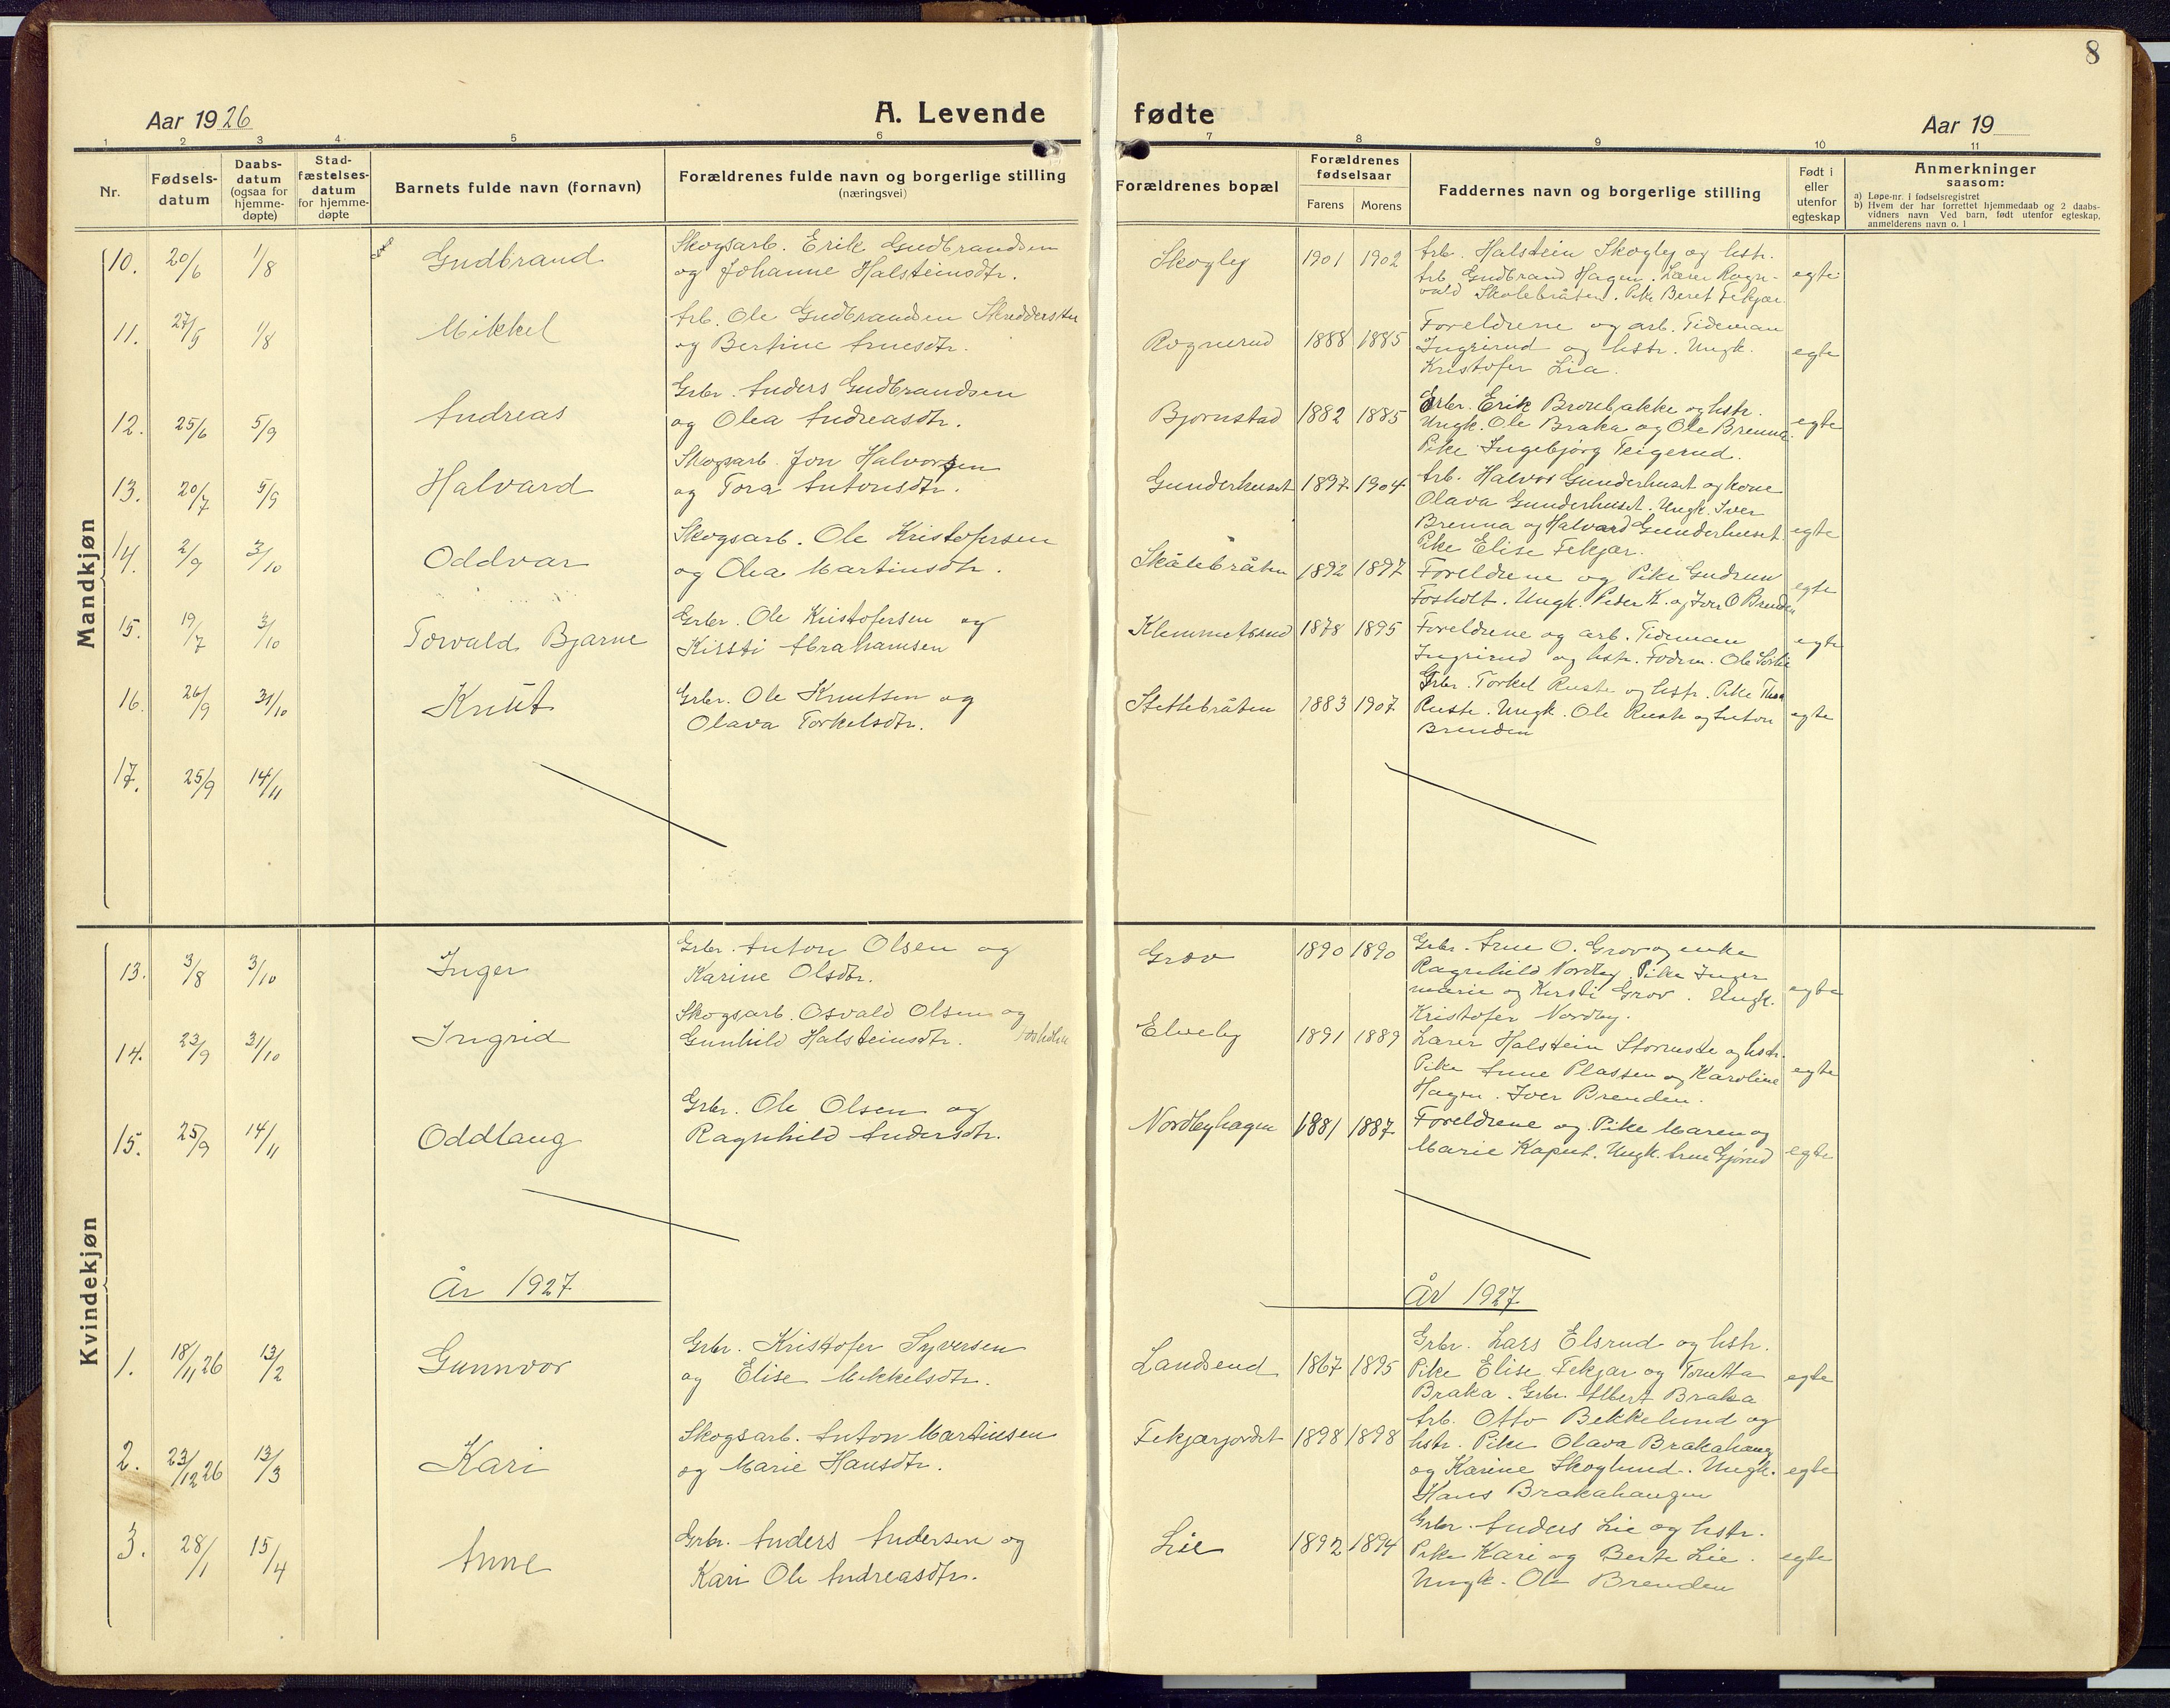 8
Aar 1926
A. Levende fødte
Aar 19
1 2 3 4 5 6 7 8 9 10 11
Nr.
Fødsels-
datum
Daabs-
datum
(ogsaa for
hjemme-
døpte)
Stad-
fæstelses-
datum
for hjemme-
døpte
Barnets fulde navn (fornavn)
Forældrenes fulde navn og borgerlige stilling
(næringsvei)
Forældrenes bopæl
Forældrenes
fødselsaar
Farens Morens
Faddernes navn og borgerlige stilling
Født i
eller
utenfor
egteskap
Anmerkninger
saasom:
a) Løpe-nr. i fødselsregistret
b) Hvem der har forrettet hjemmedaab og 2 daabs-
vidners navn Ved barn, født utenfor egteskap,
anmelderens navn o. l
Mandkjøn
10. 20/6 1/8 Gudbrand
Skogsarb. Erik Gudbrandsen
og Johanne Halsteinsdtr.
Skogly 1901 1902
Arb. Halstein Skogly og hstr.
Arb. Gudbrand Hagen. Lærer Ragn-
vald Skålebråten. Pike Beret Fekjær.
egte
11. 27/5 1/8 Mikkel
Arb. Ole Gudbrandsen
og Bertine Arnesdtr.
Rognerud 1888 1885
Foreldrene og arb. Tideman
Ingrirud og hstr. Ungk.
Kristofer Lia.
egte
12. 25/6 5/9 Andreas
Grbr. Anders Gudbrandsen
og Olea Andreasdtr.
Bjørnstad 1882 1885
Grbr. Erik Bronbakke og hstr.
Ungk. Ole Braka og Ole Brenna.
Pike Ingebjørg Teigerud.
egte
13. 20/7 5/9 Halvard
Skogsarb. Jon Halvorsen
og Tora Antonsdtr.
Gunderhuset 1897 1904
Arb. Halvor Gunderhuset og kone
Olava Gunderhuset. Ungk. Iver
Brenna og Halvard Gunderhuset.
Pike Elise Fekjær.
egte
14. 2/9 3/10 Oddvar
Skogsarb. Ole Kristofersen
og Olea Martinsdtr.
Skålebråten 1892 1897
Foreldrene og Pike Gudrun
Fosholt. Ungk. Peder K. og Iver O Brenden
egte
15. 19/7 3/10 Torvald Bjarne
Grbr. Ole Kristofersen og
Kissti Abrahamsen
Klemmetsrud 1878 1895
Foreldrene og arb. Tideman
Ingrirud og hstr. Fodm. Ole
egte
16. 26/9 31/10 Knut
Grbr. Ole Knutsen og
Olava Torkelsdtr.
Slettebråten 1883 1907
Grbr. Torkel Ruste og hstr. Pike Thea
Ruste. Ungk. Ole Ruste og Anton
Brenden
egte
17. 25/9 14/11
Kvindekjøn
13. 3/8 3/10 Inger
Grbr. Anton Olsen og
Karine Olsdtr.
Grov 1890 1890
Grbr. Arne O. Grov og enke
Ragnhild Nordby. Pike Inger
marie og Kersti Grov. Ungk.
Kristofer Nordby.
egte
14. 23/9 31/10 Ingrid
Skogsarb. Osvald Olsen og
Gunhild Halsteinsdtr.
Elveby 1891 1889
Lærer Halstein Storruste og hstr.
Pike Anne Plassen og Karoline
Hagen. Iver Brenden.
egte
15. 25/9 14/11 Oddlaug
Grbr. Ole Olsen og
Ragnhild Andersdtr.
Nordbyhagen 1881 1887
Foreldrene og Pike Maren og
Marie Kaput. Ungk. Arne Gjørud
egte
År 1927 År 1927
1. 18/11 26 13/2 Gunnvor
Grbr. Kristofer Syversen
og Elise Mikkelsdtr.
Landsend 1867 1895
Grbr. Lars Elsrud og hstr.
Pike Elise Fekjær og Tonetta
Braka. Grbr. Albert Braka
egte
2. 23/12 26 13/3 Kari
Skogsarb. Anton Martinsen
og Marie Hansdtr.
Fekjærjordet 1898 1898
Arb. Otto Bekkelund og
hstr. Pike Olava Brakahaug
og Karine Skoglund. Ungk.
Hans Brakahaugen
egte
3. 28/1 15/4 Anne
Grbr. Anders Andersen og
Kari Ole Andreasdtr.
Lie 1892 1894
Grbr. Anders Lie og hstr.
Pike Kari og Berte Lie.
Ungk. Ole Brenden
egte